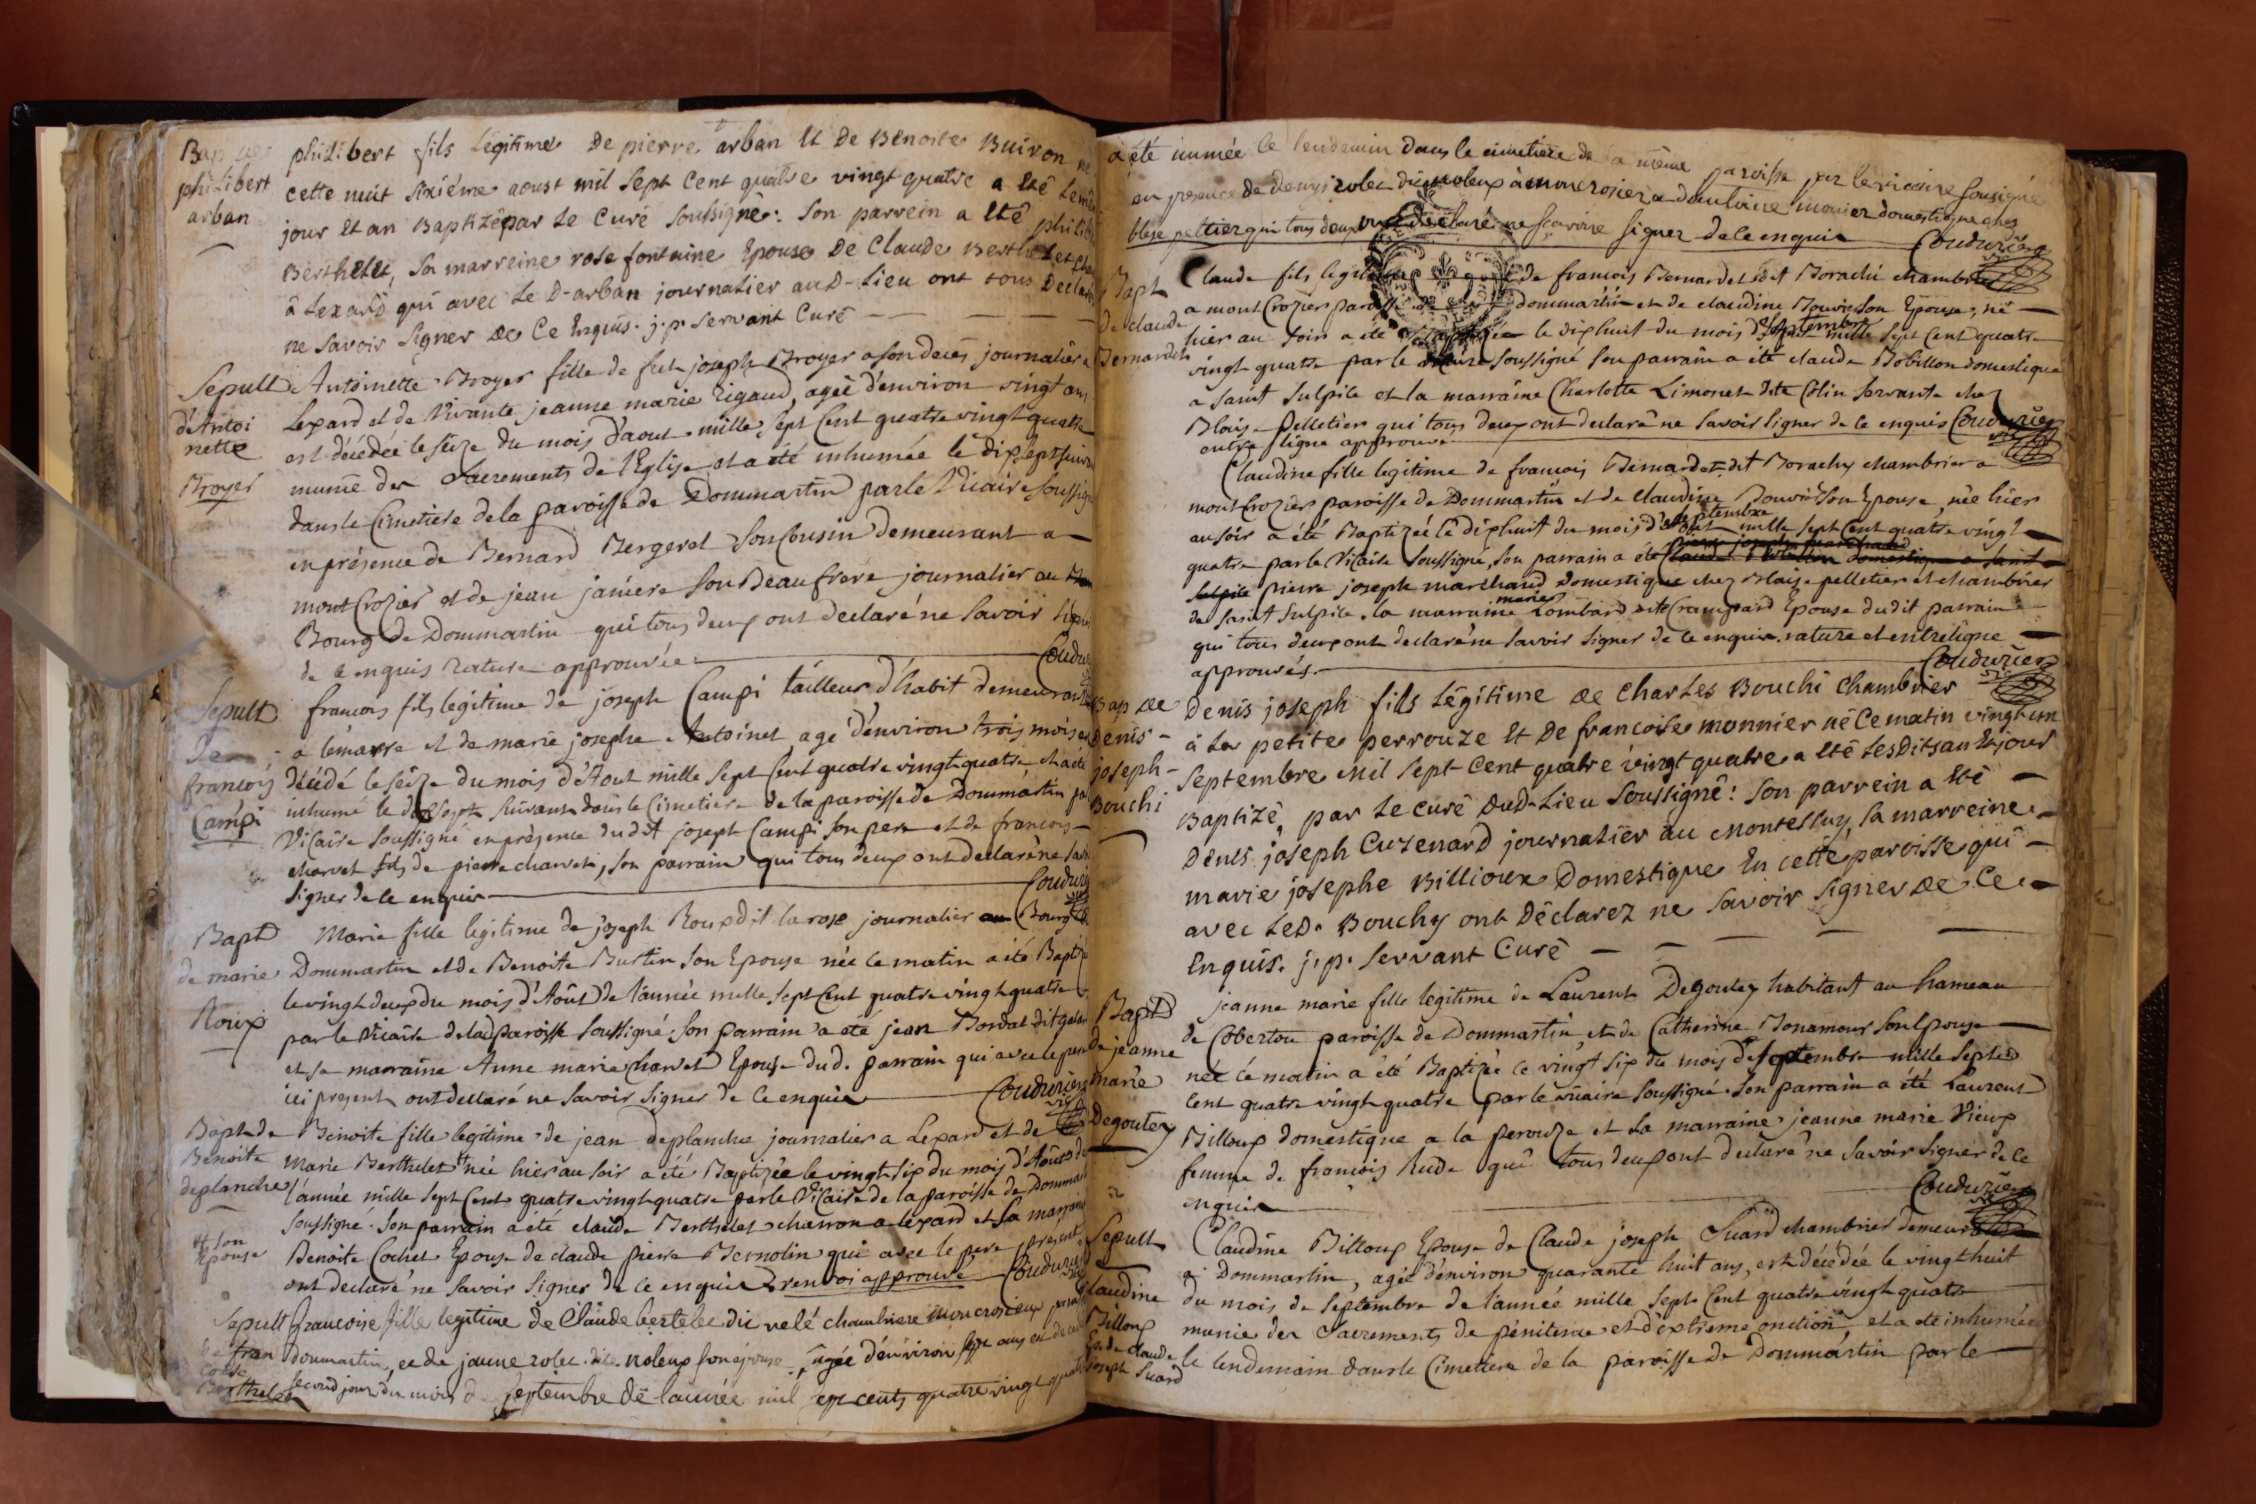 philibert fils Légitime De pierre arban Et De Benoite Buiron né
Bap
philibert
arban
cette nuit sixième aoust mil sept cent quatre vingt quatre a Eté
jour Et an Baptizé par Le curé soussigné: son parrein a Eté
Berthelet, sa marreine rose fontaine Epouse De Claude Berthelet
à Lexard qui avec Le D. arban journalier au D. Lieu ont tous Declaré
ne savoir signer De Ce Enquis. j. p. servant Curé
Sepult
d'Antoi
nette
Broyer
Antoinette Broyer fille de feu joseph Broyer a son decès journalier a
Lexard et de vivante jeanne marie Rigaud, agée d'environ vingt ans
est décédée le seize du mois d'aout mille sept Cent quatre vingt quatre
munie des Sacrements de l'Eglise et a été inhumée le dix sept suivant
dans le Cimetiere de la paroisse de Dommartin par le Vicaire soussigné
en présence de Bernard Bergeret son Cousin demeurant a
mont Crozier et de jean janiere son Beau frere journalier au
Bourg de Dommartin qui tous deux ont declaré ne savoir signer
de ce enquis rature approuvée Couduri
Sepult
de
francois
Campi
francois fils legitime de joseph Campi tailleur d'habit demeurant
a lemarre et de marie josephe Antoinet agé d'environ trois mois est
décédé le seize du mois d'Aout mille sept Cent quatre vingt quatre et a été
inhumé le dix sept suivant dans le Cimetiere de la paroisse de Dommartin par
Vicaire soussigné en présence dudit joseph Campi son pere et de francois
charvet fils de pierre charvet, son parrain qui tous deux ont declaré ne savoir
signer de ce enquis Couduri
Bapt
de marie
Roux
Marie fille legitime de joseph Roux dit la rose journalier au Bourg de
Dommartin et de Benoite Bustin son Epouse née ce matin a été Baptizée
le vingt deux du mois d'Août de l'année mille sept Cent quatre vingt quatre
par le Vicaire de lad paroisse soussigné. son parrain a été jean Bordat dit
et sa marraine Anne marie Charvet Epouse dud. parrain qui avec le pere
ici present ont declaré ne savoir signer de ce enquis Couduriers
Bapt de
Benoite
deplanche
Benoite fille legitime de jean deplanche journalier a Lexard et de
Marie Berthelet née hier au soir a été Baptizée le vingt six du mois d'Août de
l'année mille sept Cent quatre vingt quatre par le Vicaire de la paroisse de Dommartin
soussigné. son parrain a été claude Berthelet charron a lexard et sa marraine
son
Epouse
Benoite Cochet Epouse de claude pierre Bernolin qui avec le pere present
ont declaré ne savoir signer de ce enquis renvoi approuvé Couduri
Sepult
de fran
coise
Berthelet
francoise fille legitime de Claude bertelet dit velé chambrier a moncrosieux
doumartin, et de janne rolet dite noleux son épouse, agée d'environ seze ans
second jour du mois de septembre de l'année mil sept cents quatre vingt quatre
a été inumée le lendemin dans le cimetiere de la même paroisse par le vicaire sousigné
en presence de denys rolet dit noleux à moncrosier a domestique chez
blese peltier qui tous deux ont declaré ne scavoire signer de ce enquis Couduriers
Bapt
De claude
Bernardet
Claude fils legitime de francois Bernardet dit Borachi chambrier
a mont Crozier paroisse de dommartin et de claudine Bouvir son Epouse, né
hier au soir a été Baptizé le dixhuit du mois de septembre mille sept Cent quatre
vingt quatre par le vicaire soussigné son parrain a été claude Bobillon domestique
a saint sulpice et la marraine Charlotte Limonet dite Colin servante chez
Blaise Pelletier qui tous deux ont declaré ne savoir signer de ce enquis Couduriers
entre ligne approuvé
Claudine fille legitime de francois Bernardet dit Borachy chambrier a
mont Crozier paroisse de Dommartin et de claudine Bouvir son Epouse, née hier
au soir a été Baptizée le dixhuit du mois de septembre mille sept Cent quatre vingt
quatre par le Vicaire soussigné, son parrain a été Claude Bobillon domestique a saint
sulpice pierre joseph marchand Domestique chez Blaise pelletier et chambrier
de saint sulpice. la marraine marie Lombard dite Crampard Epouse dudit parrain
qui tous deux ont declaré ne savoir signer de ce enquis. rature et entreligne
approuvés. Couduriers
Bap de
Denis
joseph
Bouchi
Denis joseph fils Légitime De Charles Bouchi Chambrier
à La petite perrouze Et De francoise monnier né Ce matin vingt un
septembre mil sept Cent quatre vingt quatre a Eté Lesdits an Et jour
Baptizé par Le curé DuD. Lieu soussigné: son parrein a Eté
Denis joseph Cuzenard journalier au montessuy, sa marreine
marie josephe Billioux Domestique En cette paroisse qui
avec Le D. Bouchy ont Déclarez ne savoir signer De Ce
Enquis. j. p. servant Curé
Bapt
de jeanne
marie
Degoutey
jeanne marie fille legitime de Laurent Degoutey habitant au hameau
de Cobertou paroisse de Dommartin, et de Catherine Bonamour son Epouse
née ce matin a été Baptizée le vingt six du mois de septembre mille sept
Cent quatre vingt quatre par le vicaire soussigné. son parrain a été Laurent
Billoux domestique a la perouze et la marraine jeanne marie Vieux
femme de francois Rude qui tous deux ont declaré ne savoir signer de ce
enquis Couduriers
Sepult
de
Claudine
Billoux
Ep. de claude
joseph Suard
Claudine Billoux Epouse de Claude joseph Suard chambrier demeurant
a Dommartin, agée d'environ quarante huit ans, est décédée le vingt huit
du mois de septembre de l'année mille sept Cent quatre vingt quatre
munie des Sacrements de pénitence et d'extreme onction et a été inhumée
le lendemain dans le Cimetiere de la paroisse de Dommartin par le